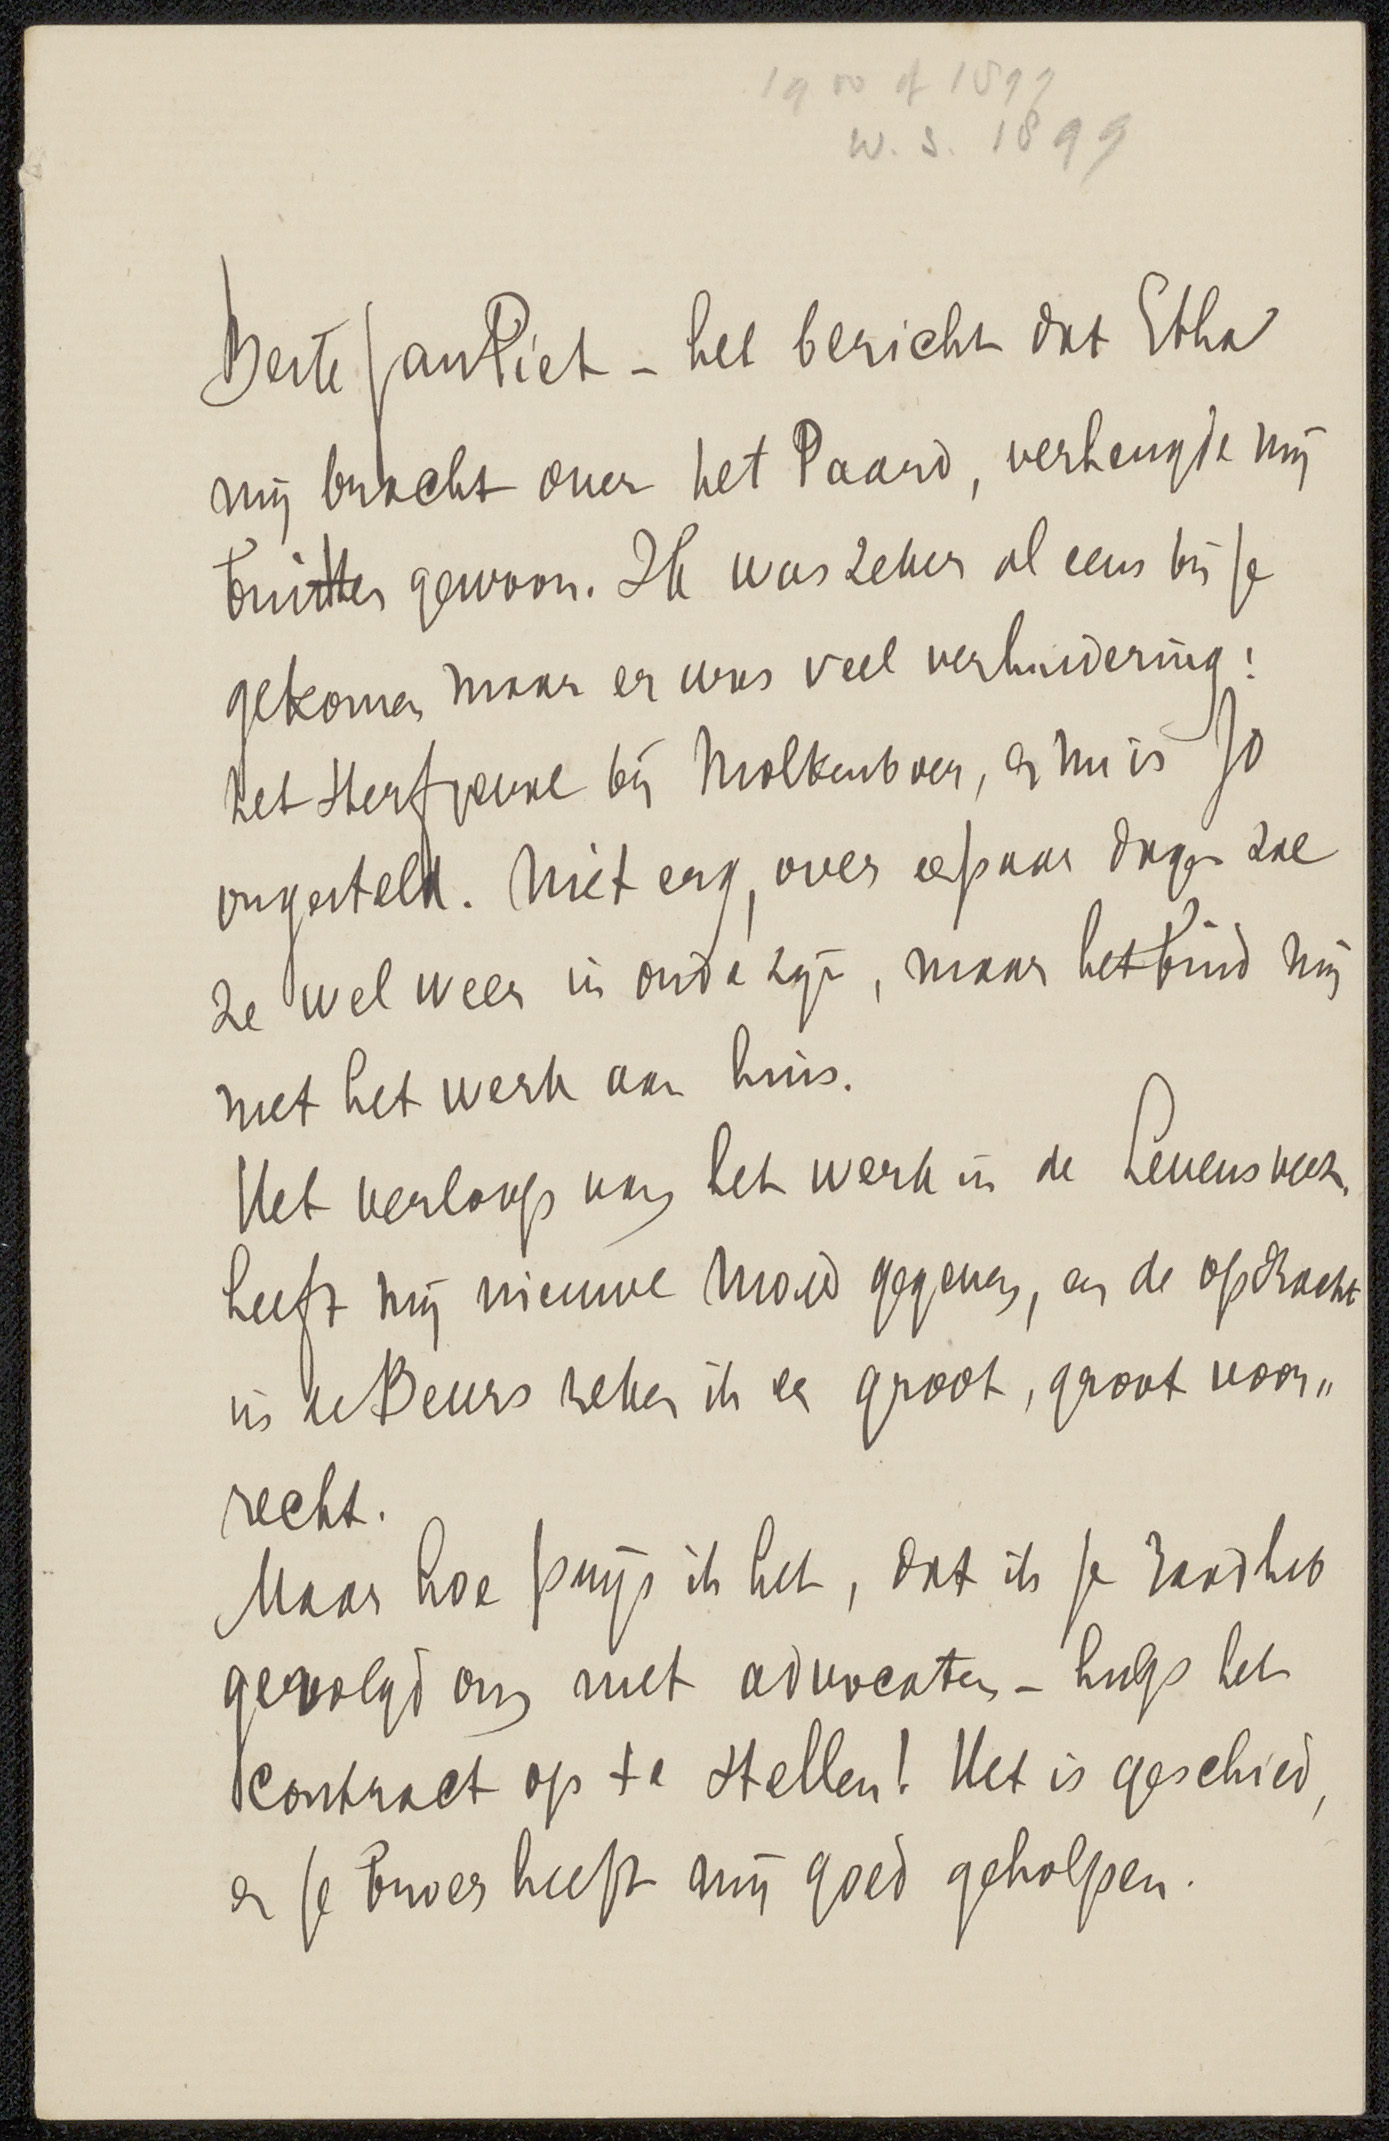 1900 of 1899
w.s. 1899
Beste Jan Piet - het bericht dat Etha
mij bracht over het Paard, verheugde mij
buiten gewoon. Ik was zeker al eens bij je
gekomen maar er was veel verhindering:
het sterfgeval bij Molkenboer, en nu is Jo
ongesteld. Niet erg, over een paar dagen zal
ze wel weer in orde zijn, maar het bind mij
met het werk aan huis.
Het verloop van het werk in de Levensverz.
heeft mij nieuwe moed gegeven, en de opdracht
in de Beurs reken ik een groot, groot voor„
recht.
Maar hoe prijs ik het, dat ik je raad heb
gevolgd om met advocaten-hulp het
contract op te stellen! Het is geschied,
en je broer heeft mij goed geholpen.